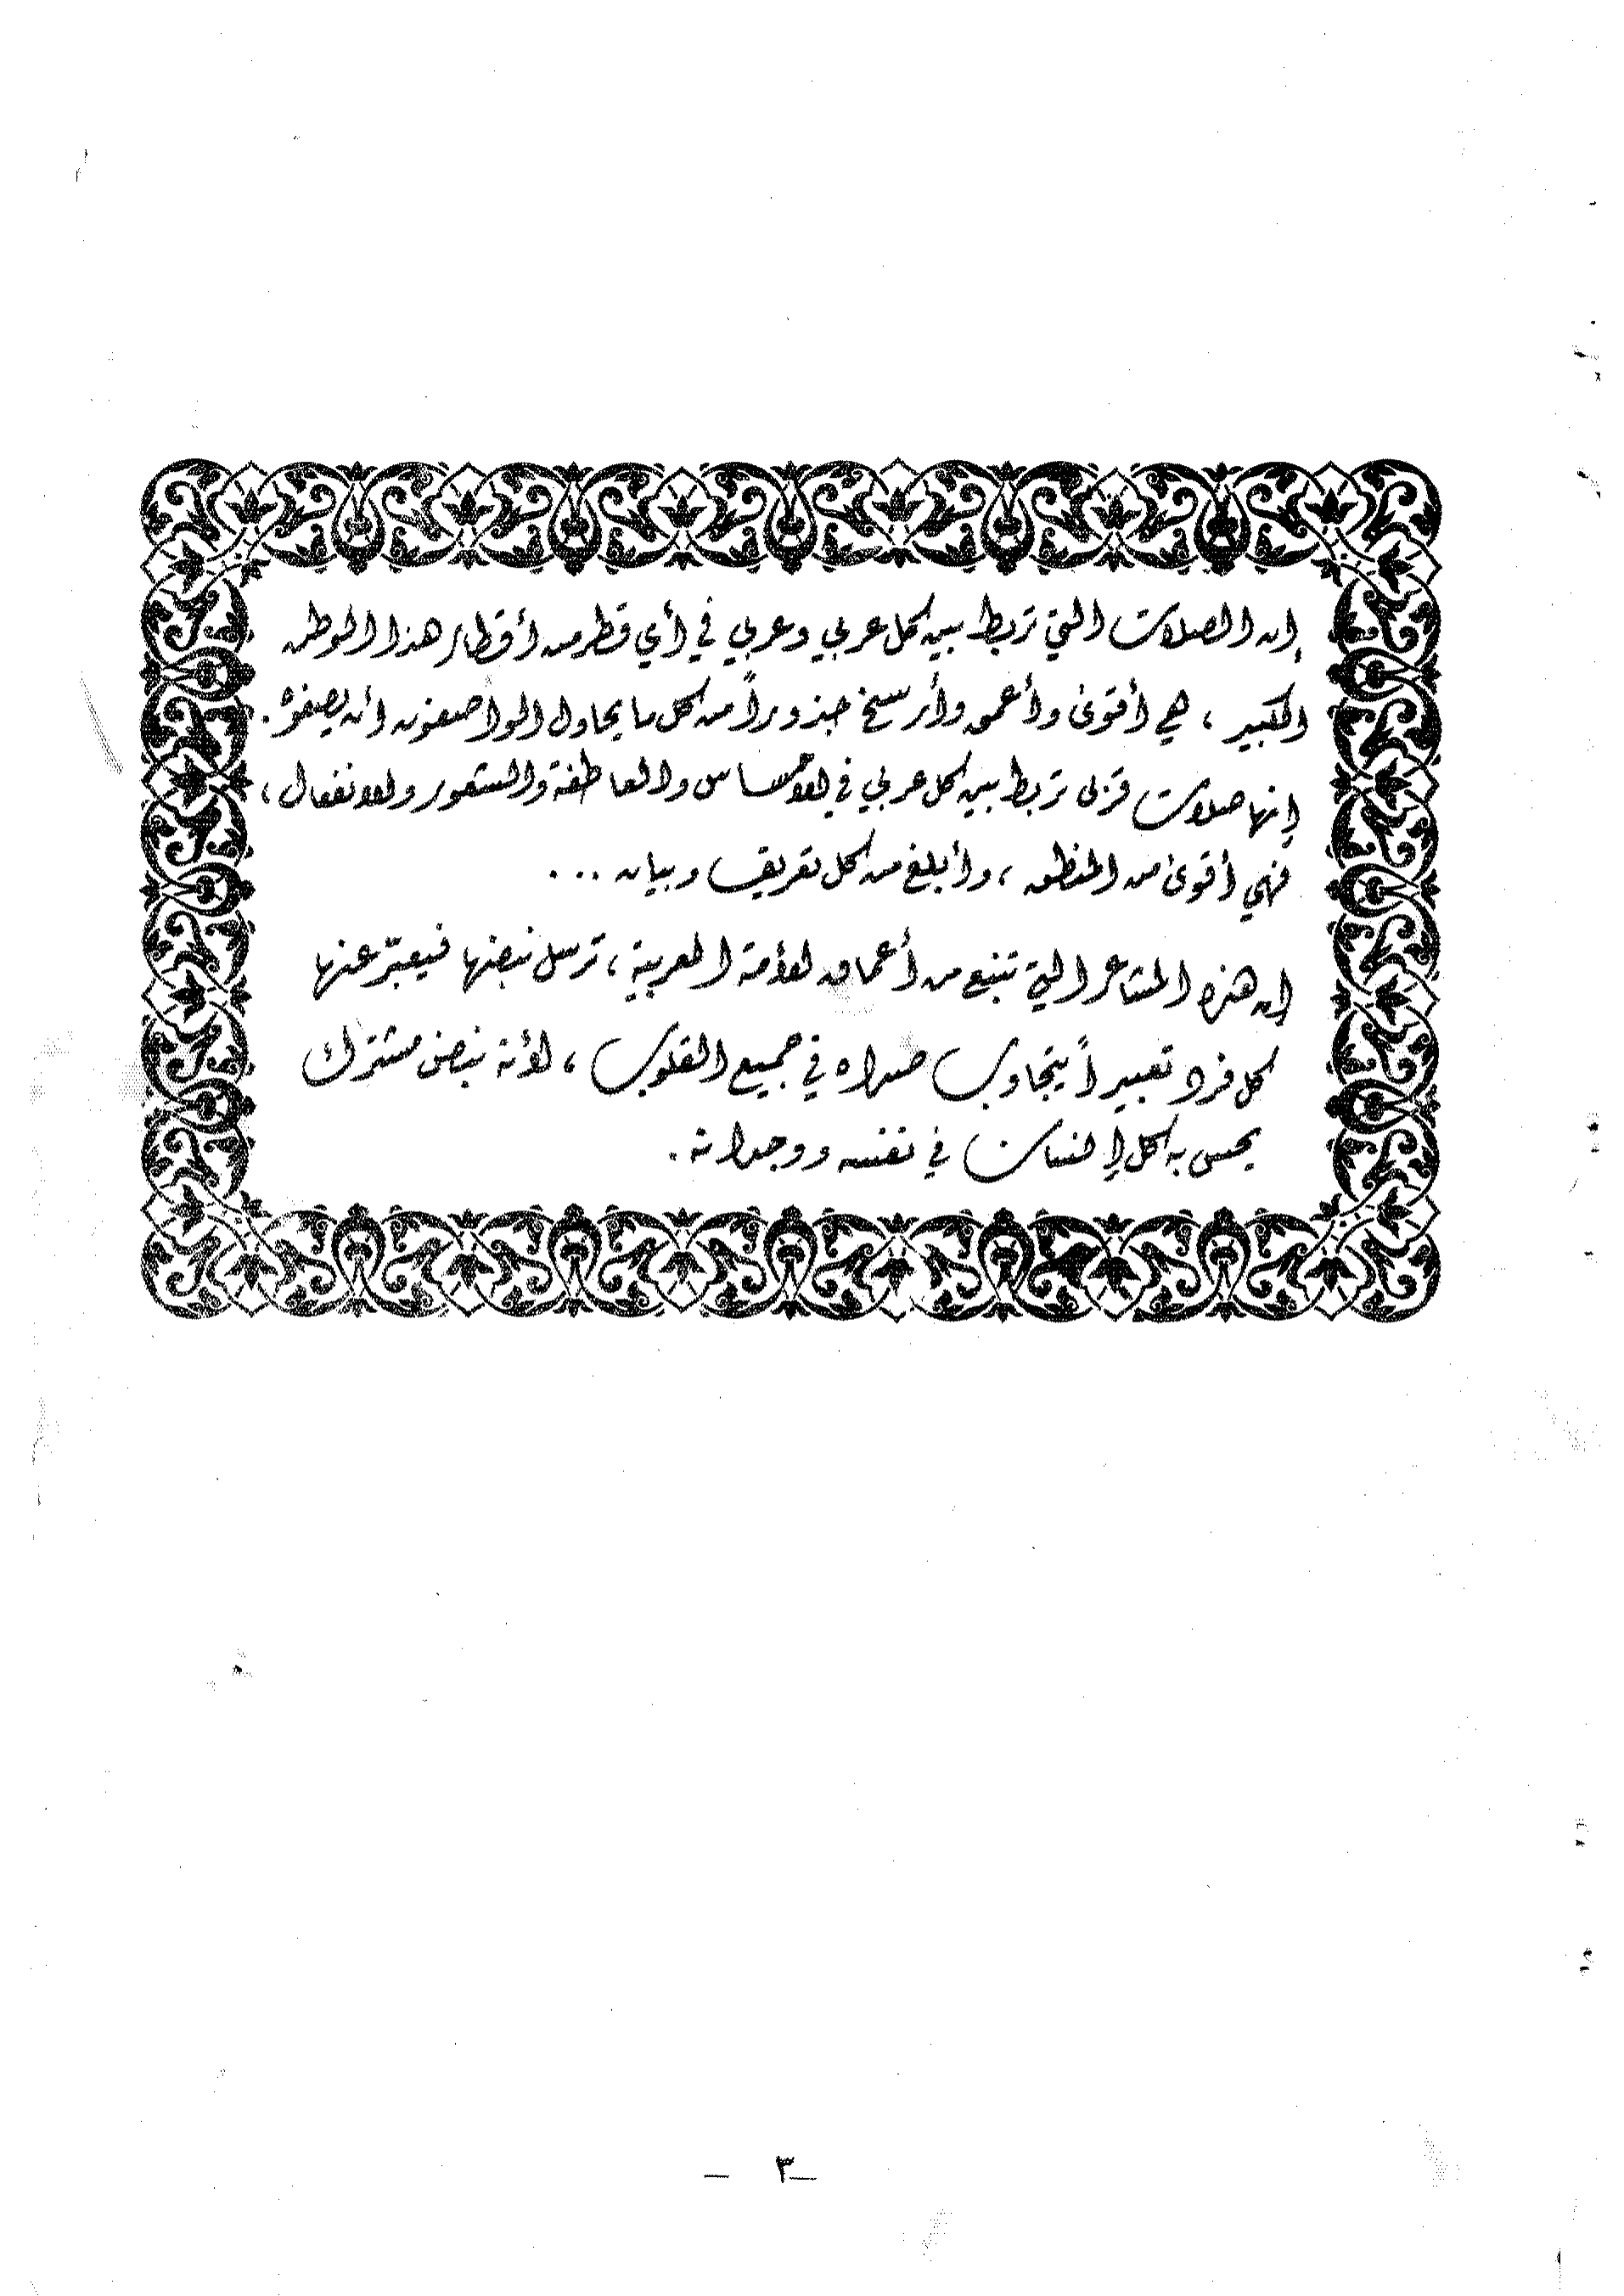 إن الصلات التي تربط بين كل عربي وعربي في أي قطر من أقطار هذا الوطن
الكبير ، هي أقوى وأعمق وأرسخ جذوراً من كل ما يحاول الواصفون أن يصفوه .
إنها صلات قربى تربط بين كل عربي في الإحساس والعاطفة والشعور والانفعال ،
فهي أقوى من المنطق ، وأبلغ من كل تعريف وبيان ...
إن هذه المشاعر التي تنبع من أعماق الأمة العربية ، ترسل نبضها فيعبّر عنها
كل فرد تعبيراً يتجاوب صداه في جميع القلوب ، لأنه نبض مشترك
يحس به كل إنسان في نفسه ووجدانه .
— ٣ —